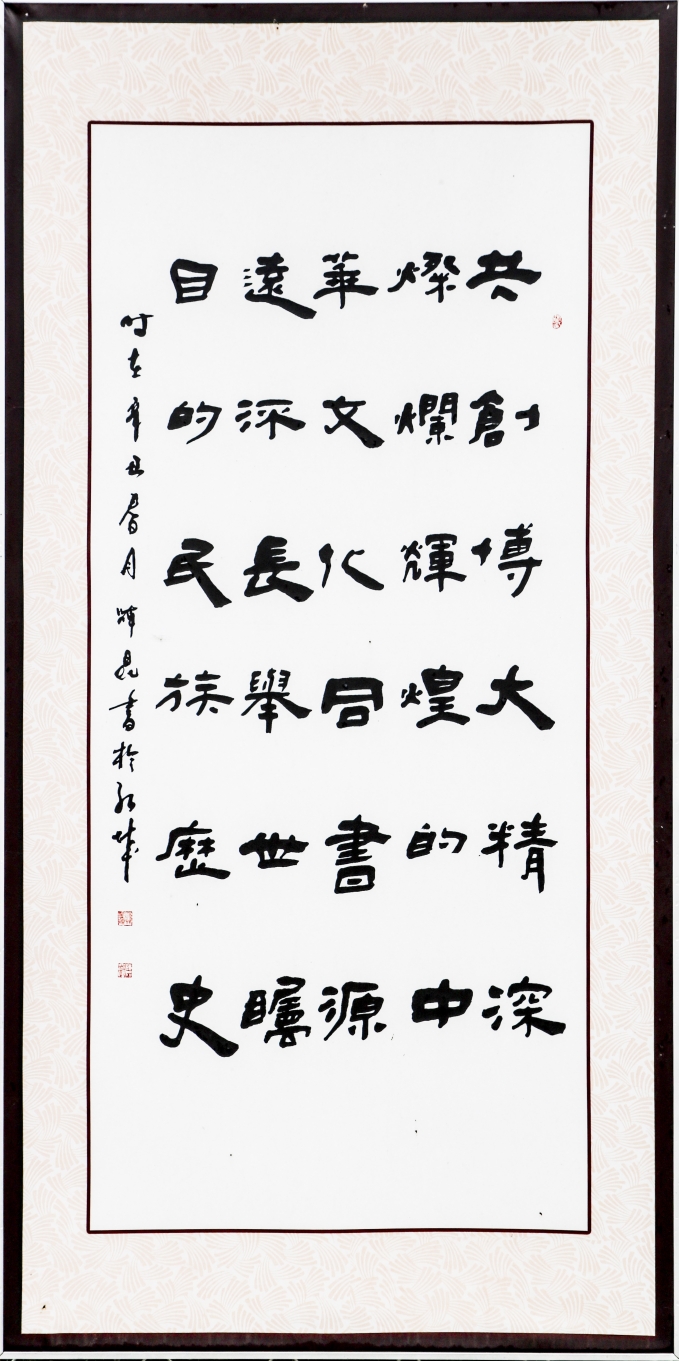 共創博大精深
燦爛輝煌的中
華文化同書源
遠流長舉世矚
目的民族歷史
時在辛丑春月輝昆書於